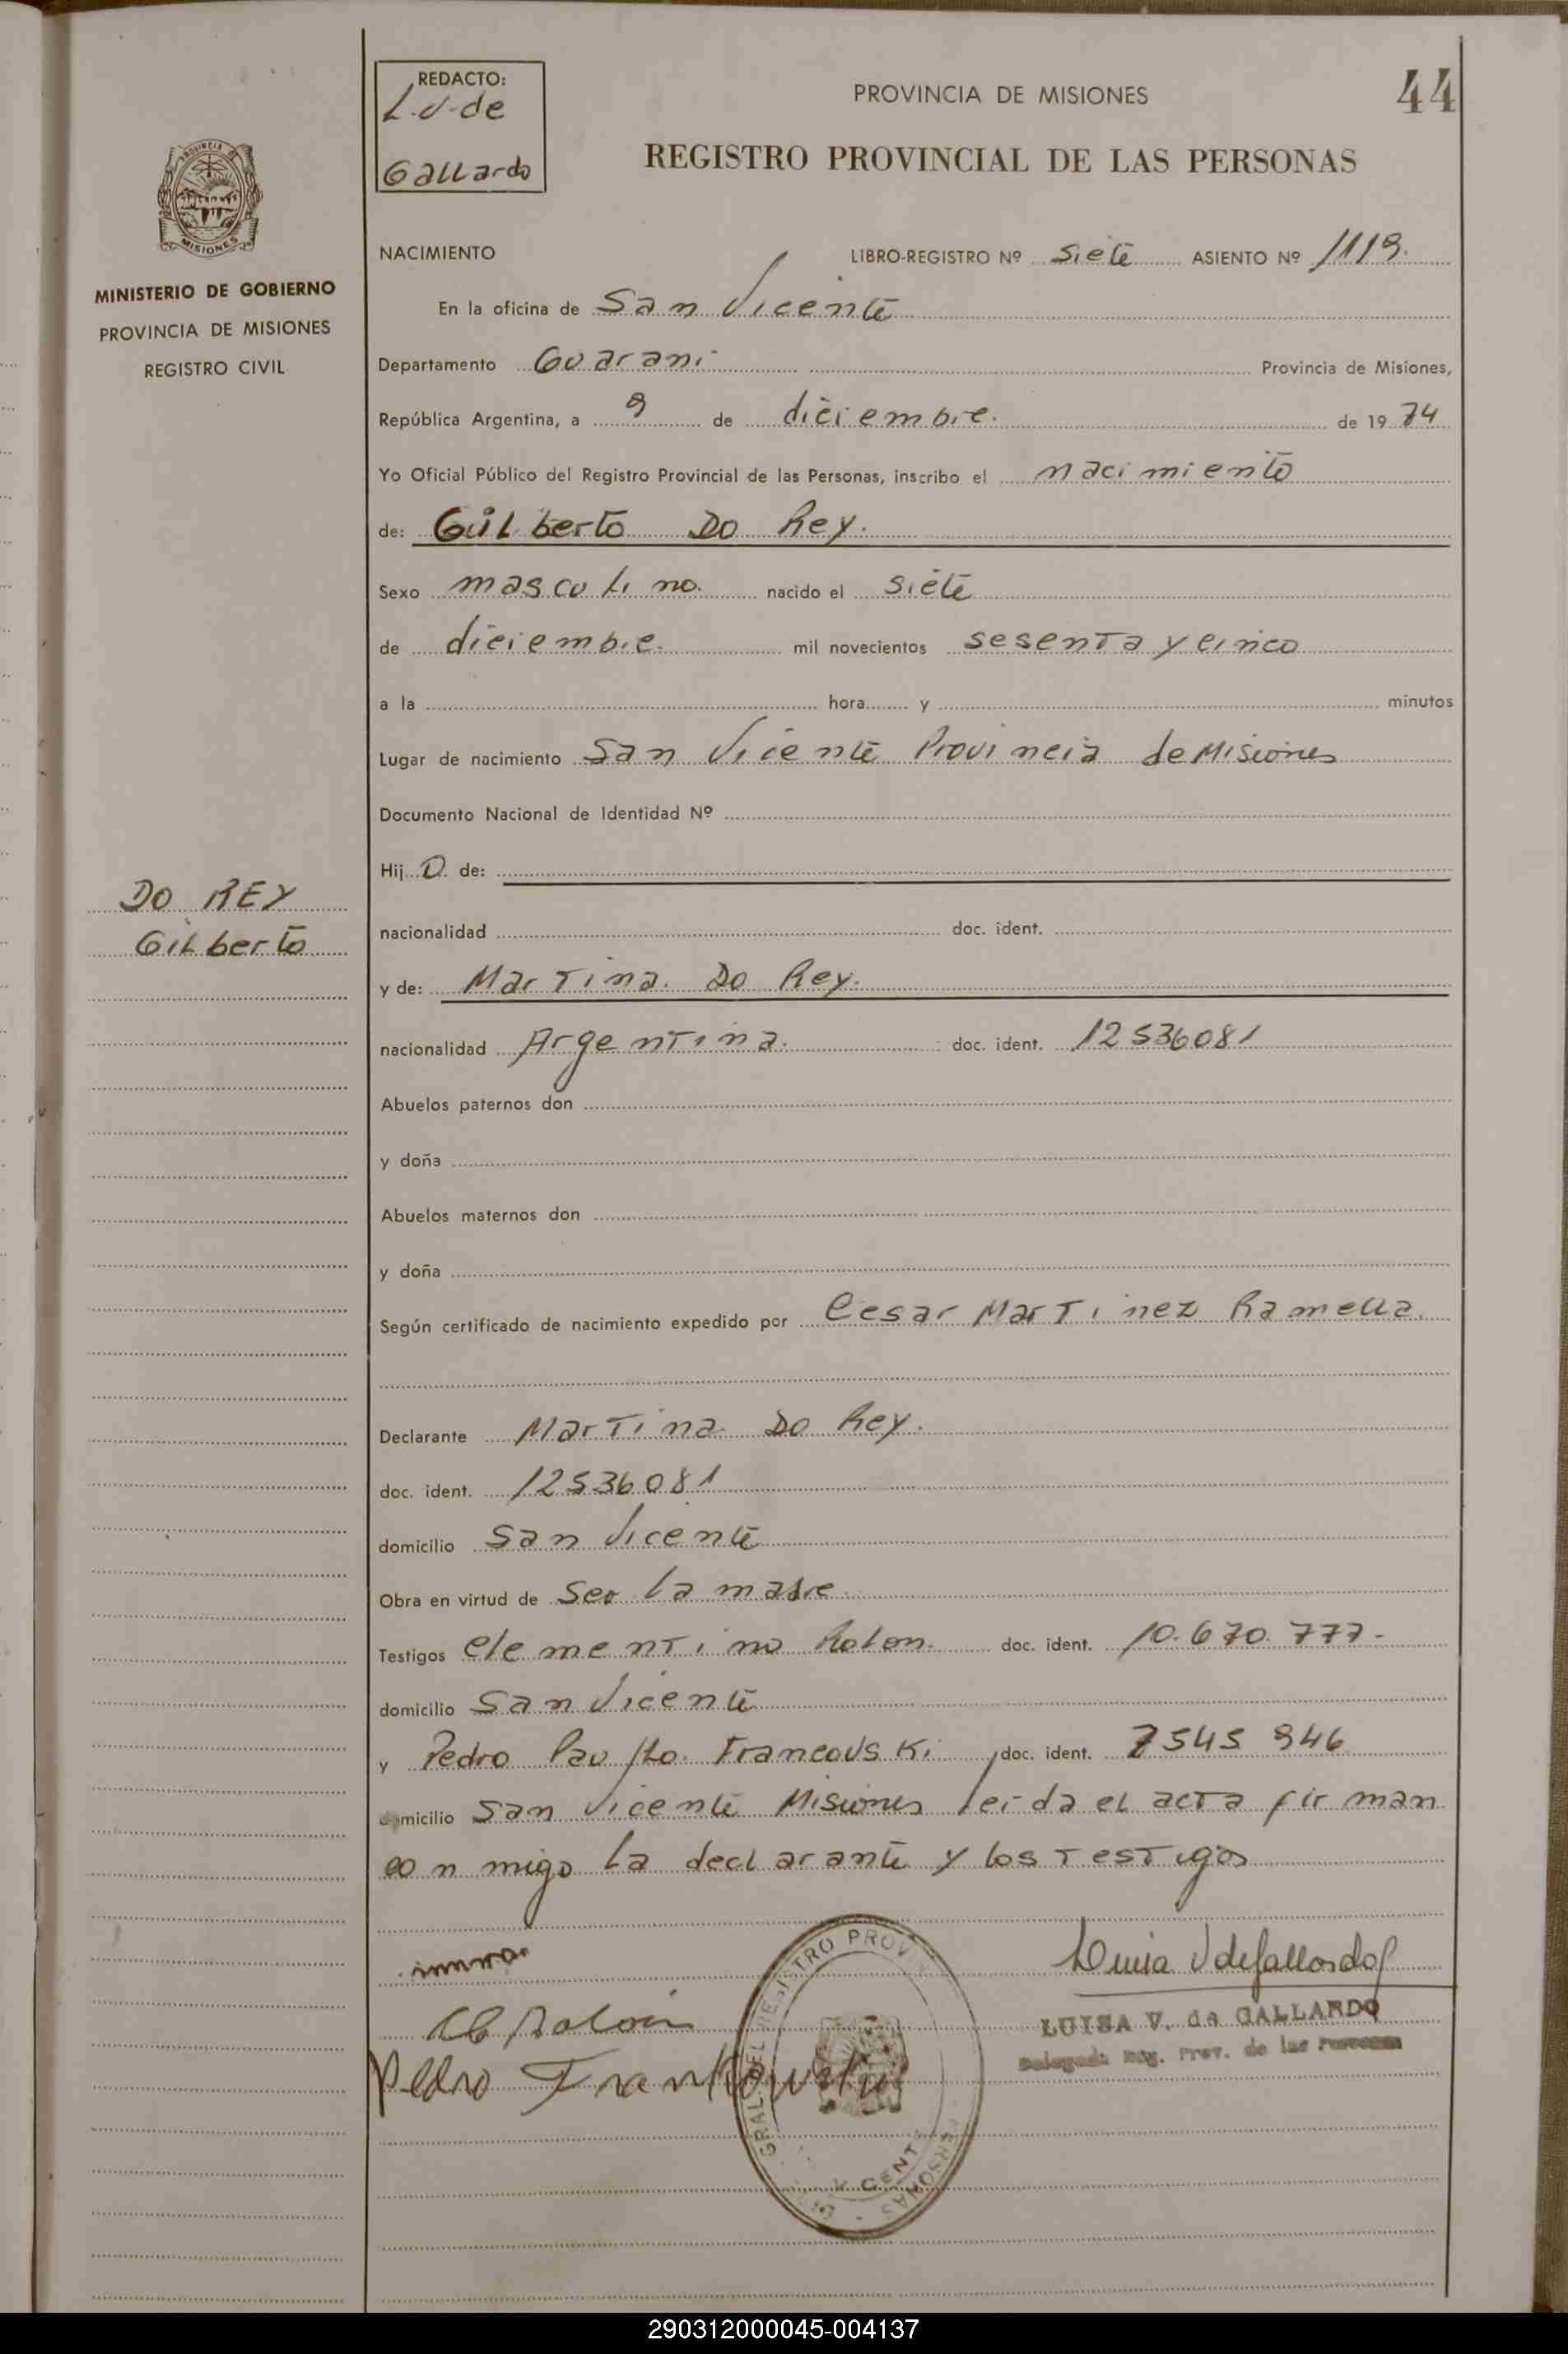 REDACTO:
L.V. de
Gallardo
PROVINCIA DE MISIONES
44
REGISTRO PROVINCIAL DE LAS PERSONAS
PROVINCIA DE
MISIONES
MINISTERIO DE GOBIERNO
PROVINCIA DE MISIONES
REGISTRO CIVIL
DO REY
Gilberto
NACIMIENTO LIBRO-REGISTRO Nº siete ASIENTO Nº 1119.
En la oficina de San Vicente
Departamento Guarani Provincia de Misiones,
República Argentina, a 9 de diciembre. de 1974
Yo Oficial Público del Registro Provincial de las Personas, inscribo el nacimiento
de: Gilberto Do Rey.
Sexo masculino. nacido el siete
de diciembre. mil novecientos sesenta y cinco
a la hora y minutos
Lugar de nacimiento San Vicente Provincia de Misiones
Documento Nacional de Identidad Nº
Hijo de:
nacionalidad doc. ident.
y de: Martina. Do Rey.
nacionalidad Argentina. doc. ident. 12536081
Abuelos paternos don
y doña
Abuelos maternos don
y doña
Según certificado de nacimiento expedido por Cesar Martinez Ramella.
Declarante Martina Do Rey.
doc. ident. 12536081
domicilio San Vicente
Obra en virtud de ser la madre
Testigos Clementino Rolon. doc. ident. 10.670.777-
domicilio San Vicente
y Pedro Francouski doc. ident. 7545946
domicilio San Vicente Misiones leida el acta firman
conmigo la declarante y los testigos
Luisa V de Gallardo
LUISA V. de GALLARDO
Delegada Reg. Prov. de las Personas
Rolon
Pedro Frankouski
GRAL. DEL REGISTRO PROVIN
PERSONAS
VICENTE
290312000045-004137